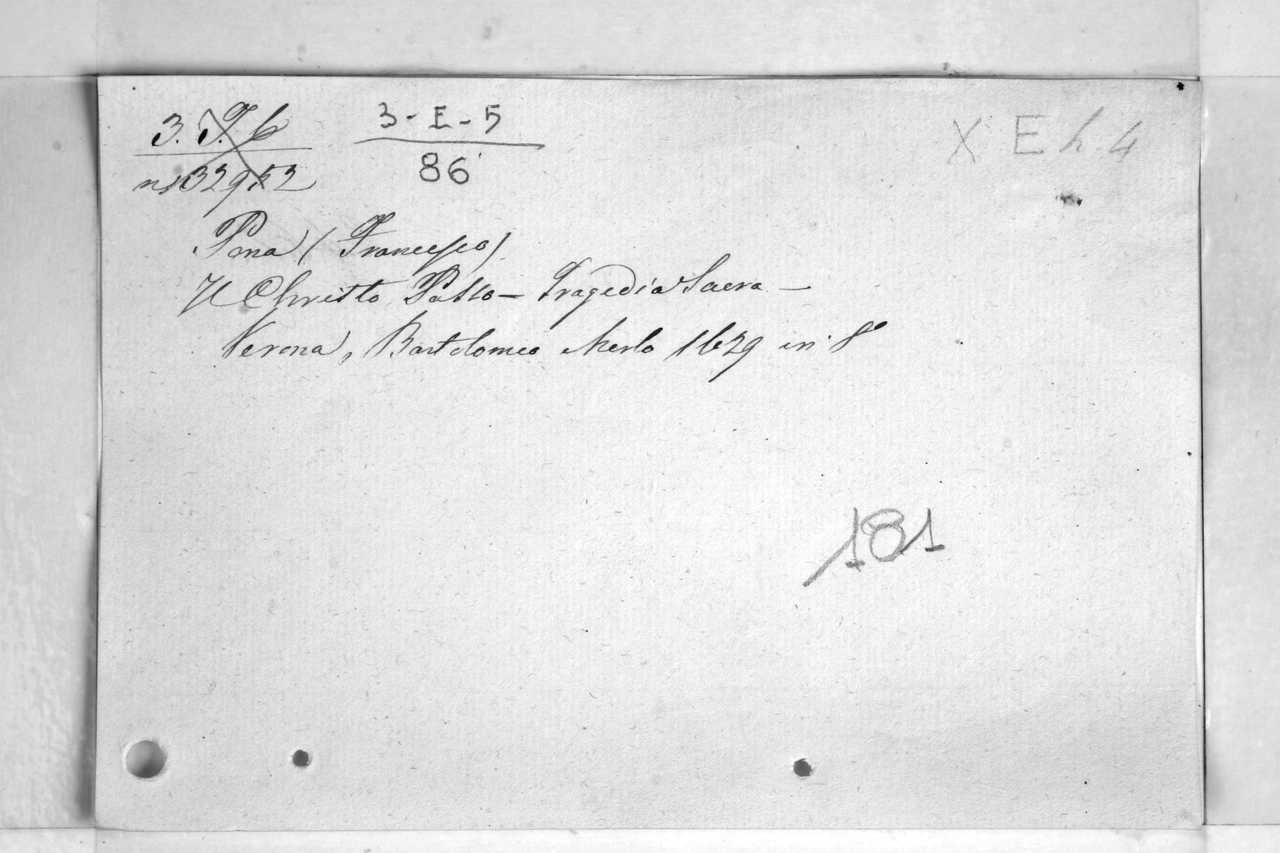 3. T. 6
3-E-5
X E h 4
86
Pona (Francesco)
Il Christo Passo - Tragedia Sacra -
Verona, Bartolomeo Merlo 1629 in 8°
181